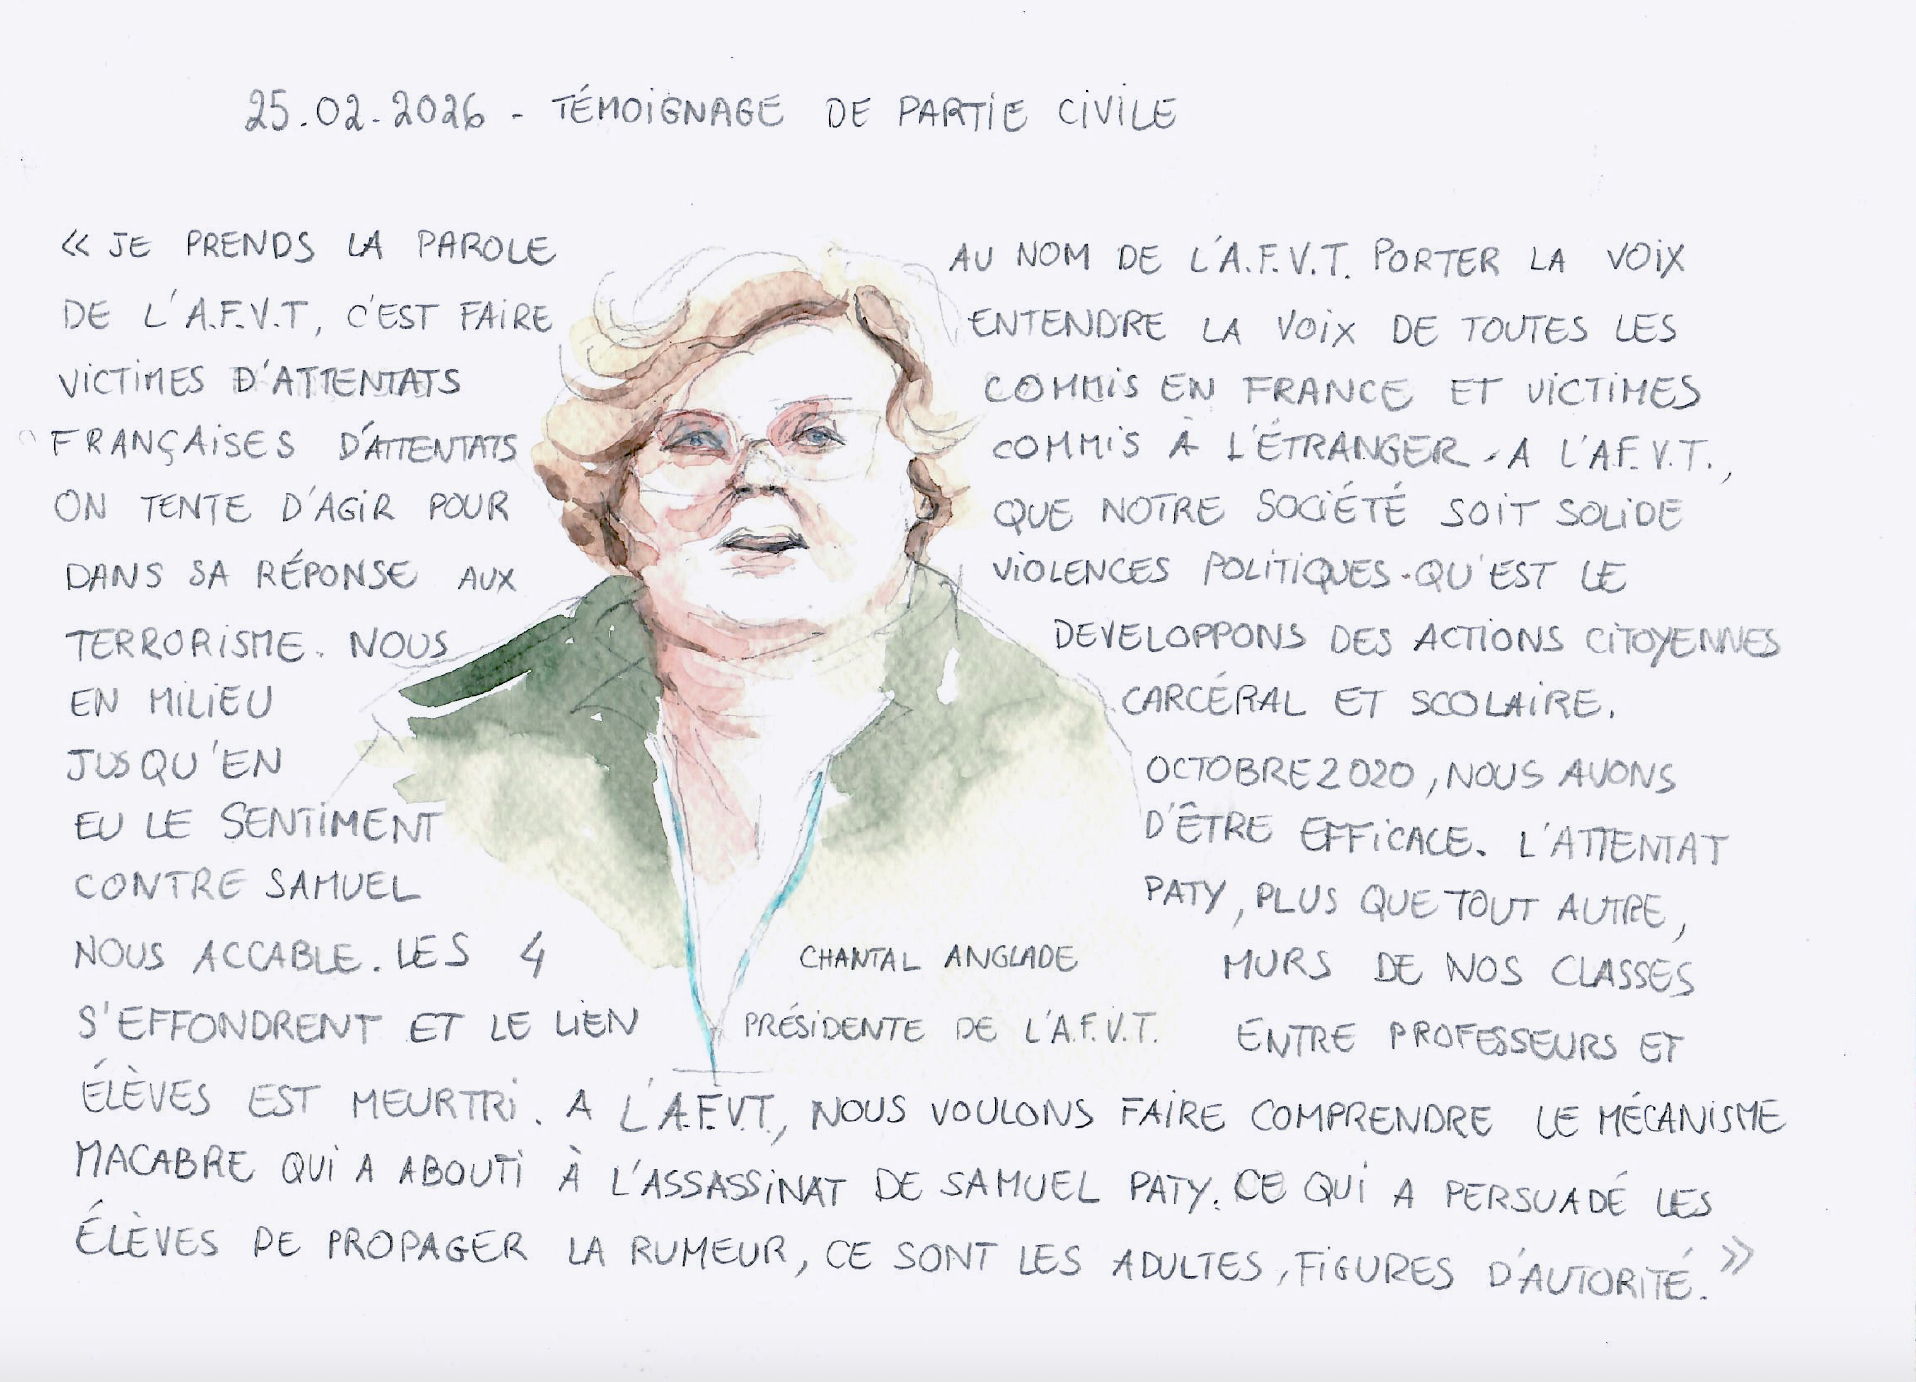 25.02.2026 - TÉMOIGNAGE DE PARTIE CIVILE
« JE PRENDS LA PAROLE AU NOM DE L'A.F.V.T. PORTER LA VOIX
DE L'A.F.V.T, C'EST FAIRE ENTENDRE LA VOIX DE TOUTES LES
VICTIMES D'ATTENTATS COMMIS EN FRANCE ET VICTIMES
FRANÇAISES D'ATTENTATS COMMIS À L'ÉTRANGER. A L'A.F.V.T.,
ON TENTE D'AGIR POUR QUE NOTRE SOCIÉTÉ SOIT SOLIDE
DANS SA RÉPONSE AUX VIOLENCES POLITIQUES. QU'EST LE
TERRORISME. NOUS DEVELOPPONS DES ACTIONS CITOYENNES
EN MILIEU CARCÉRAL ET SCOLAIRE.
JUSQU'EN OCTOBRE 2020, NOUS AVONS
EU LE SENTIMENT D'ÊTRE EFFICACE. L'ATTENTAT
CONTRE SAMUEL PATY, PLUS QUE TOUT AUTRE,
NOUS ACCABLE. LES 4 MURS DE NOS CLASSES
S'EFFONDRENT ET LE LIEN ENTRE PROFESSEURS ET
ÉLÈVES EST MEURTRI. A L'A.F.V.T., NOUS VOULONS FAIRE COMPRENDRE LE MÉCANISME
MACABRE QUI A ABOUTI À L'ASSASSINAT DE SAMUEL PATY. CE QUI A PERSUADÉ LES
ÉLÈVES DE PROPAGER LA RUMEUR, CE SONT LES ADULTES, FIGURES D'AUTORITÉ. »
CHANTAL ANGLADE
PRÉSIDENTE DE L'A.F.V.T.